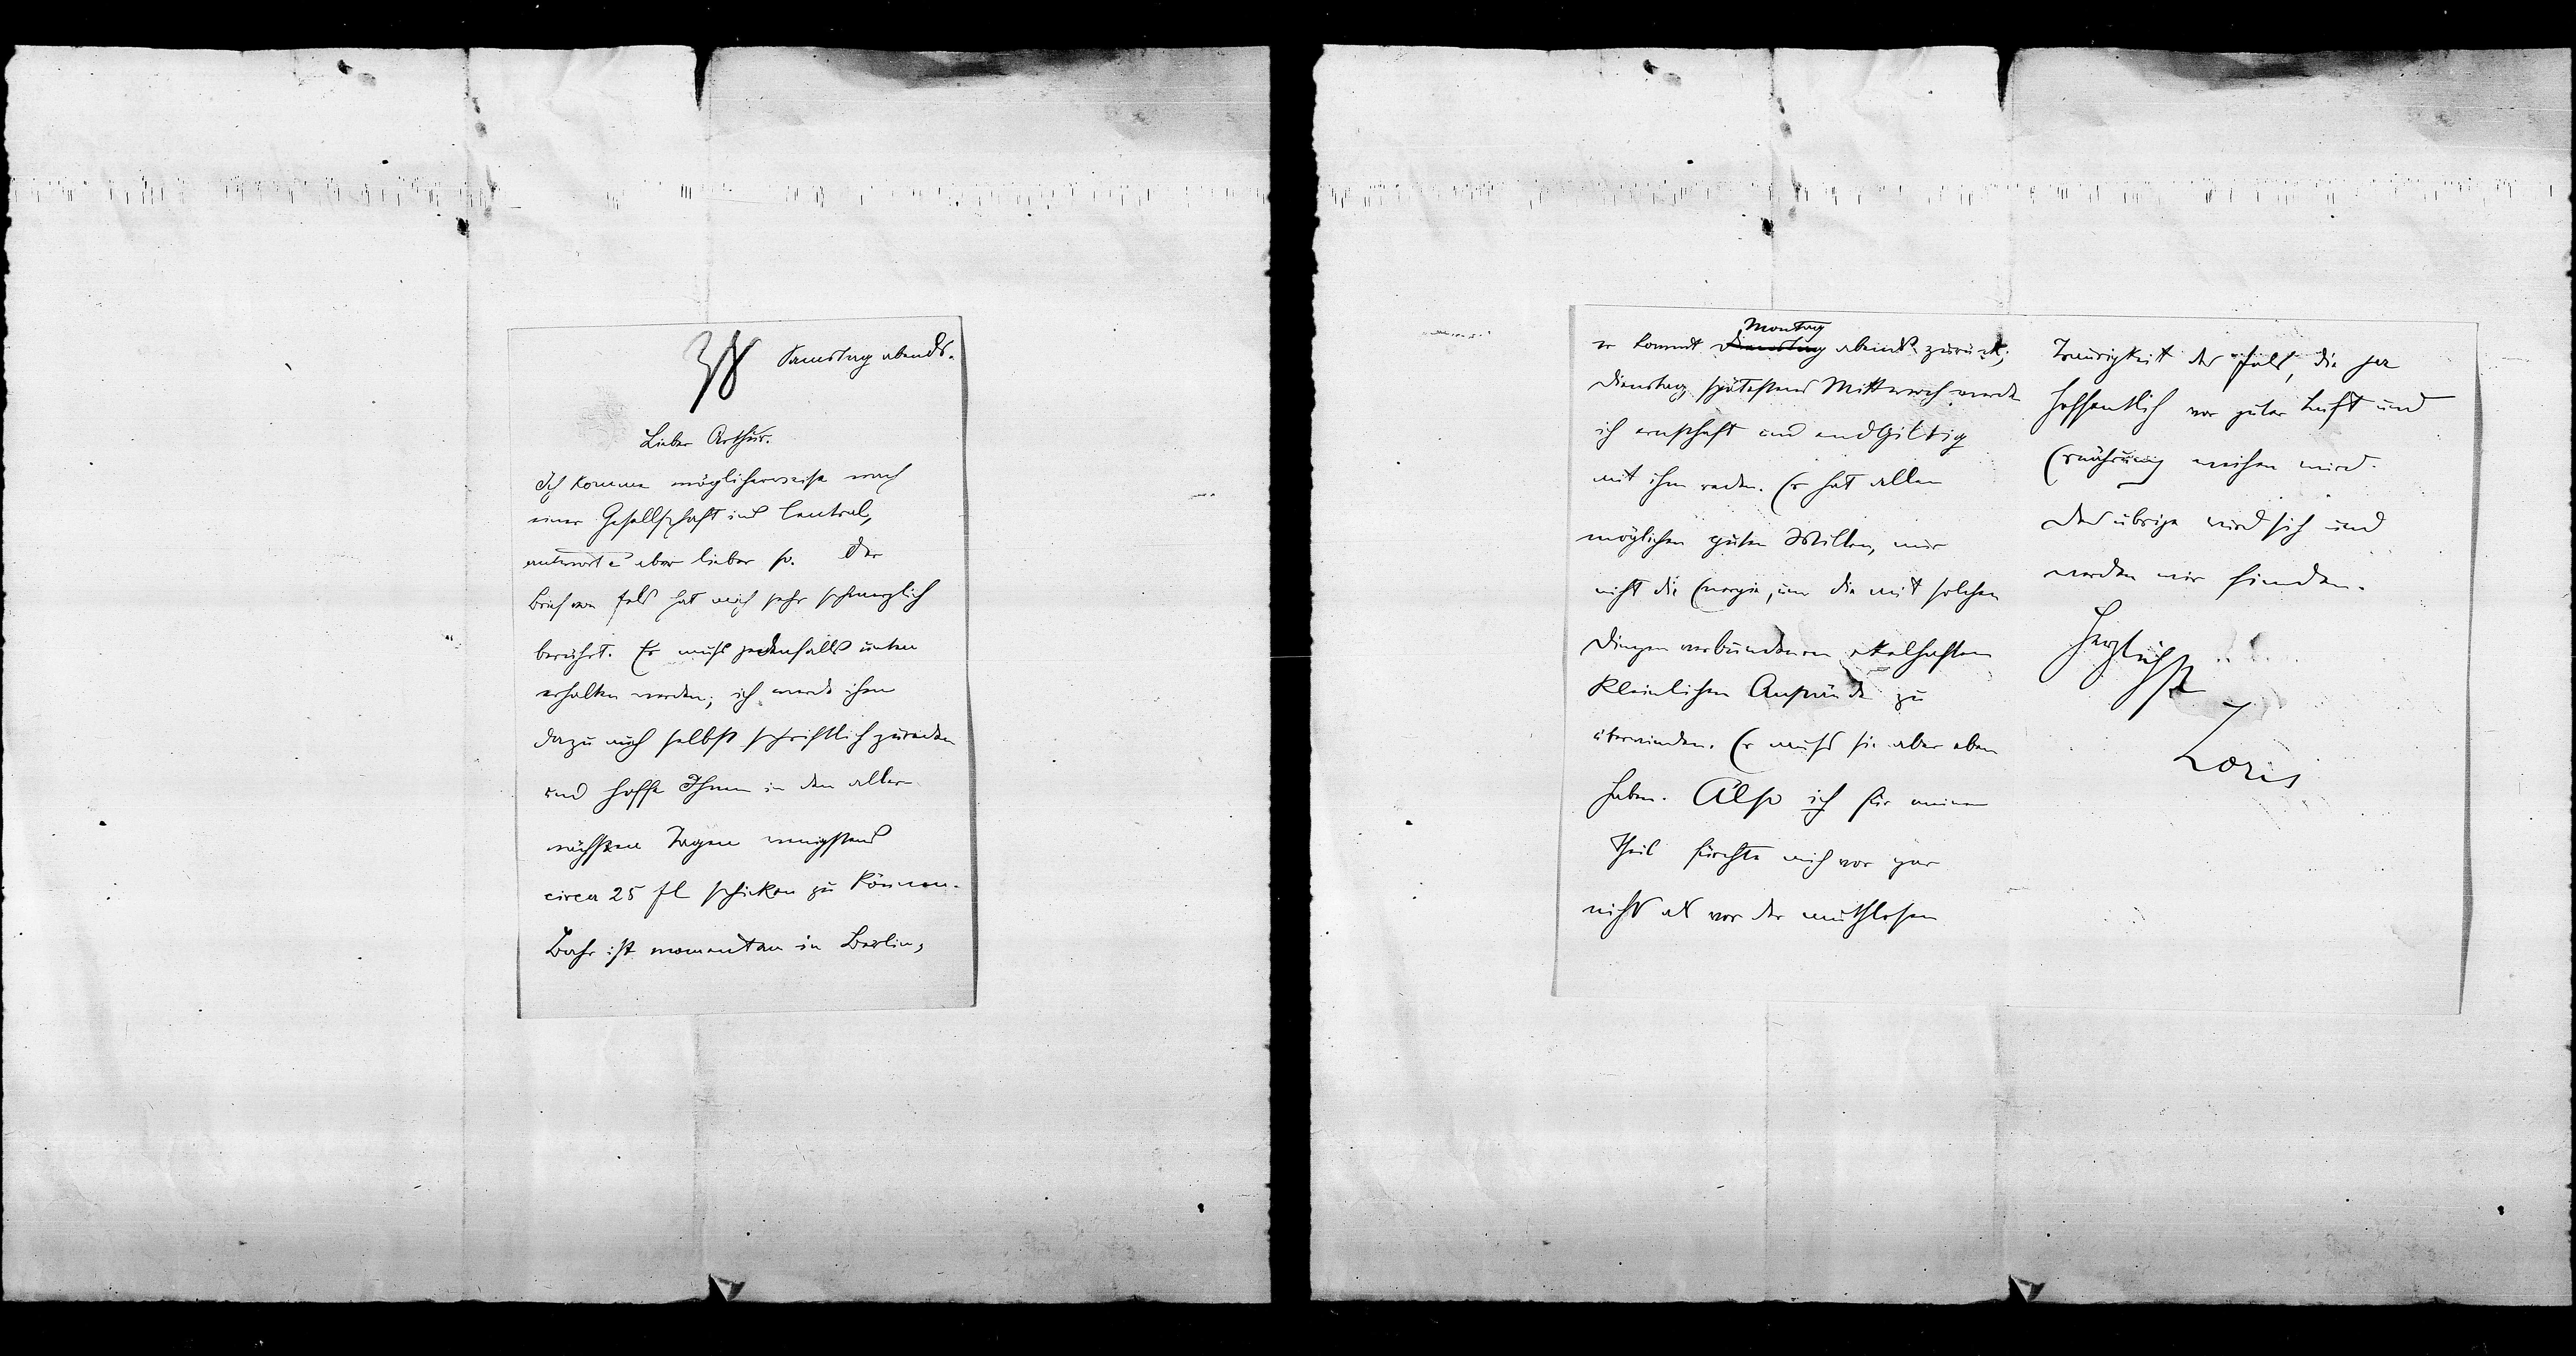 38 Samstag abends.
Lieber Arthur.
Ich komme möglicherweise nach
einer Gesellschaft ins Central,
antworte aber lieber so. Der
Brief von Fels hat mich sehr schmerzlich
berührt. Er muß jedenfalls unten
erhalten werden; ich werde ihm
dazu auch selbst schriftlich zureden
und hoffe Ihnen in den aller
nächsten Tagen wenigstens
circa 25 fl schicken zu können.
Bahr ist momentan in Berlin,
er kommt Dienstag Montag abends zurück;
Dienstag spätestens Mittwoch werde
ich ernsthaft und endgiltig
mit ihm reden. Er hat allen
möglichen guten Willen, nur
nicht die Energie, um die mit solchen
Dingen verbundenen ekelhaften
kleinlichen zu
überwinden. Er muß sie aber eben
haben. Also ich für meinen
Theil fürchte mich vor gar
nichts als vor der muthlosen
Traurigkeit des Fels, die ja
hoffentlich vor guter Luft und
Ernährung weichen wird.
Das übrige wird sich und
werden wir finden.
Herzlichst
Loris